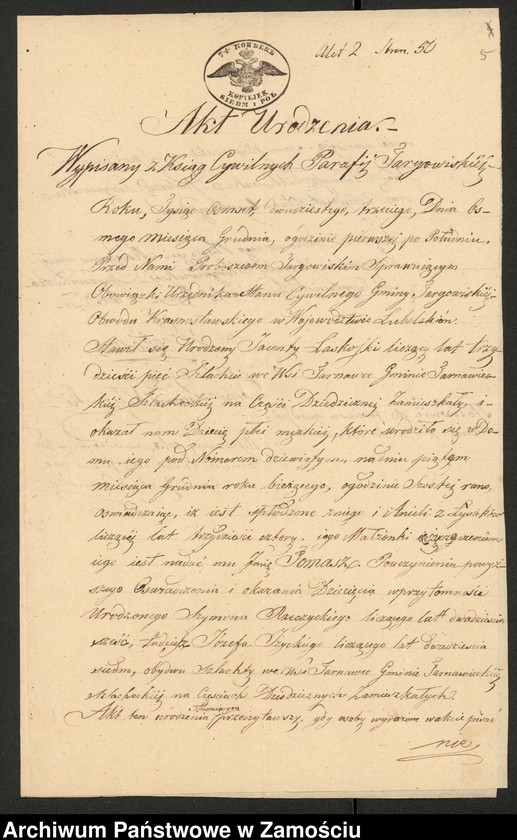 7½ КОПѢЕКЪ
КОПѢЕКЪ
СЕДМЬ И ПОЛ
Akt 2 Stron. 50
5
Akt Urodzenia.
Wypisany z Ksiąg Cywilnych Parafij Targowiskiéj
Roku, Tysiąc osmset, dwudziestego, trzeciego, Dnia Os-
mego miesiąca Grudnia, ogodzinie pierwszéj po Południu.
Przed Nami Proboszczem Targowiskim Sprawuiącym
Obowiązki Urzędnika Stanu Cywilnego Gminy Targowiskiéj
Obwodu Krasnostawskiego w Województwie Lubelskim.
Stawił się Urodzony Jacenty Laskoski liczący lat trzy-
dzieści pięć Szlachcic we Wsi Tarnawce Gminie Tarnawie-
ckiéj Szlacheckiéj na Części Dziedzicznéj Zamieszkały i
okazał nam Dziecię płci męzkiéj, które urodziło się w Do-
mu iego pod Numerem dziewiątym, na dniu piątym
miesiąca Grudnia roku bieżącego, ogodzinie Szostéj rano,
oswiadczaiąc, iż iest spłodzone zniego i Anieli z
liczącéj lat trzydzieści cztery iego Małżonki iż życzeniem
iego iest nadać mu Jmię Tomasz. Pouczynieniu powyż-
szego Oswiadczenia i okazaniu Dziecięcia wprzytomności
Urodzonego Szymona Rzeczyckiego liczącego lat dwadzieścia
sześć, tudzież Józefa Jżyckiego liczącego lat dwadzieścia
siedm, obydwu Szlachty we Wsi Tarnawce Gminie Tarnawieckiéj
Szlacheckiéj na Częściach Dziedzicznych Zamieszkałych.
Akt ten urodzenia Stawaiącym przeczytawszy, gdy osoby wyrażone wakcie pisać
nie
Archiwum Państwowe w Zamościu